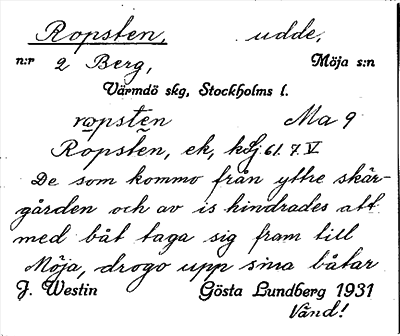 Ropsten, udde,
n:r 2 Berg, Möja s:n
Värmdö skg, Stockholms l.
ropsten Ma 9
Ropsten, ek, kSj 61. 7. V
De som kommo från yttre skär-
gården och av is hindrades att
med båt taga sig fram till
Möja, drogo upp sina båtar
J. Westin Gösta Lundberg 1931
Vänd!